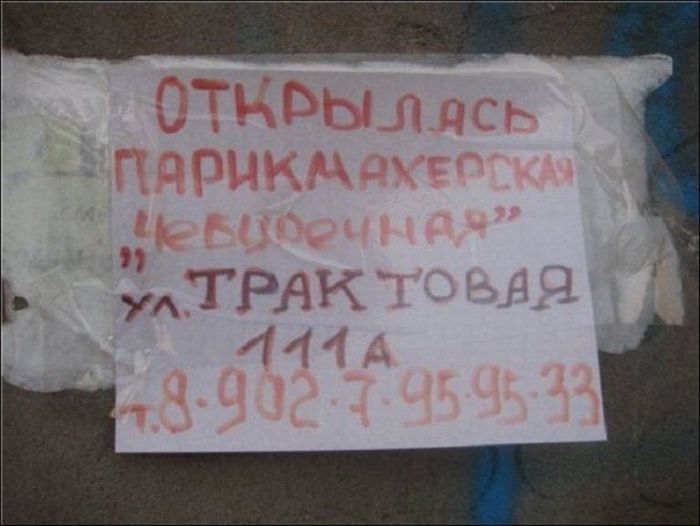 ОТКРЫЛАСЬ
ПАРИКМАХЕРСКАЯ
„Чебуречная”
ул. ТРАКТОВАЯ
111А
т. 8-902-7-95-95-33